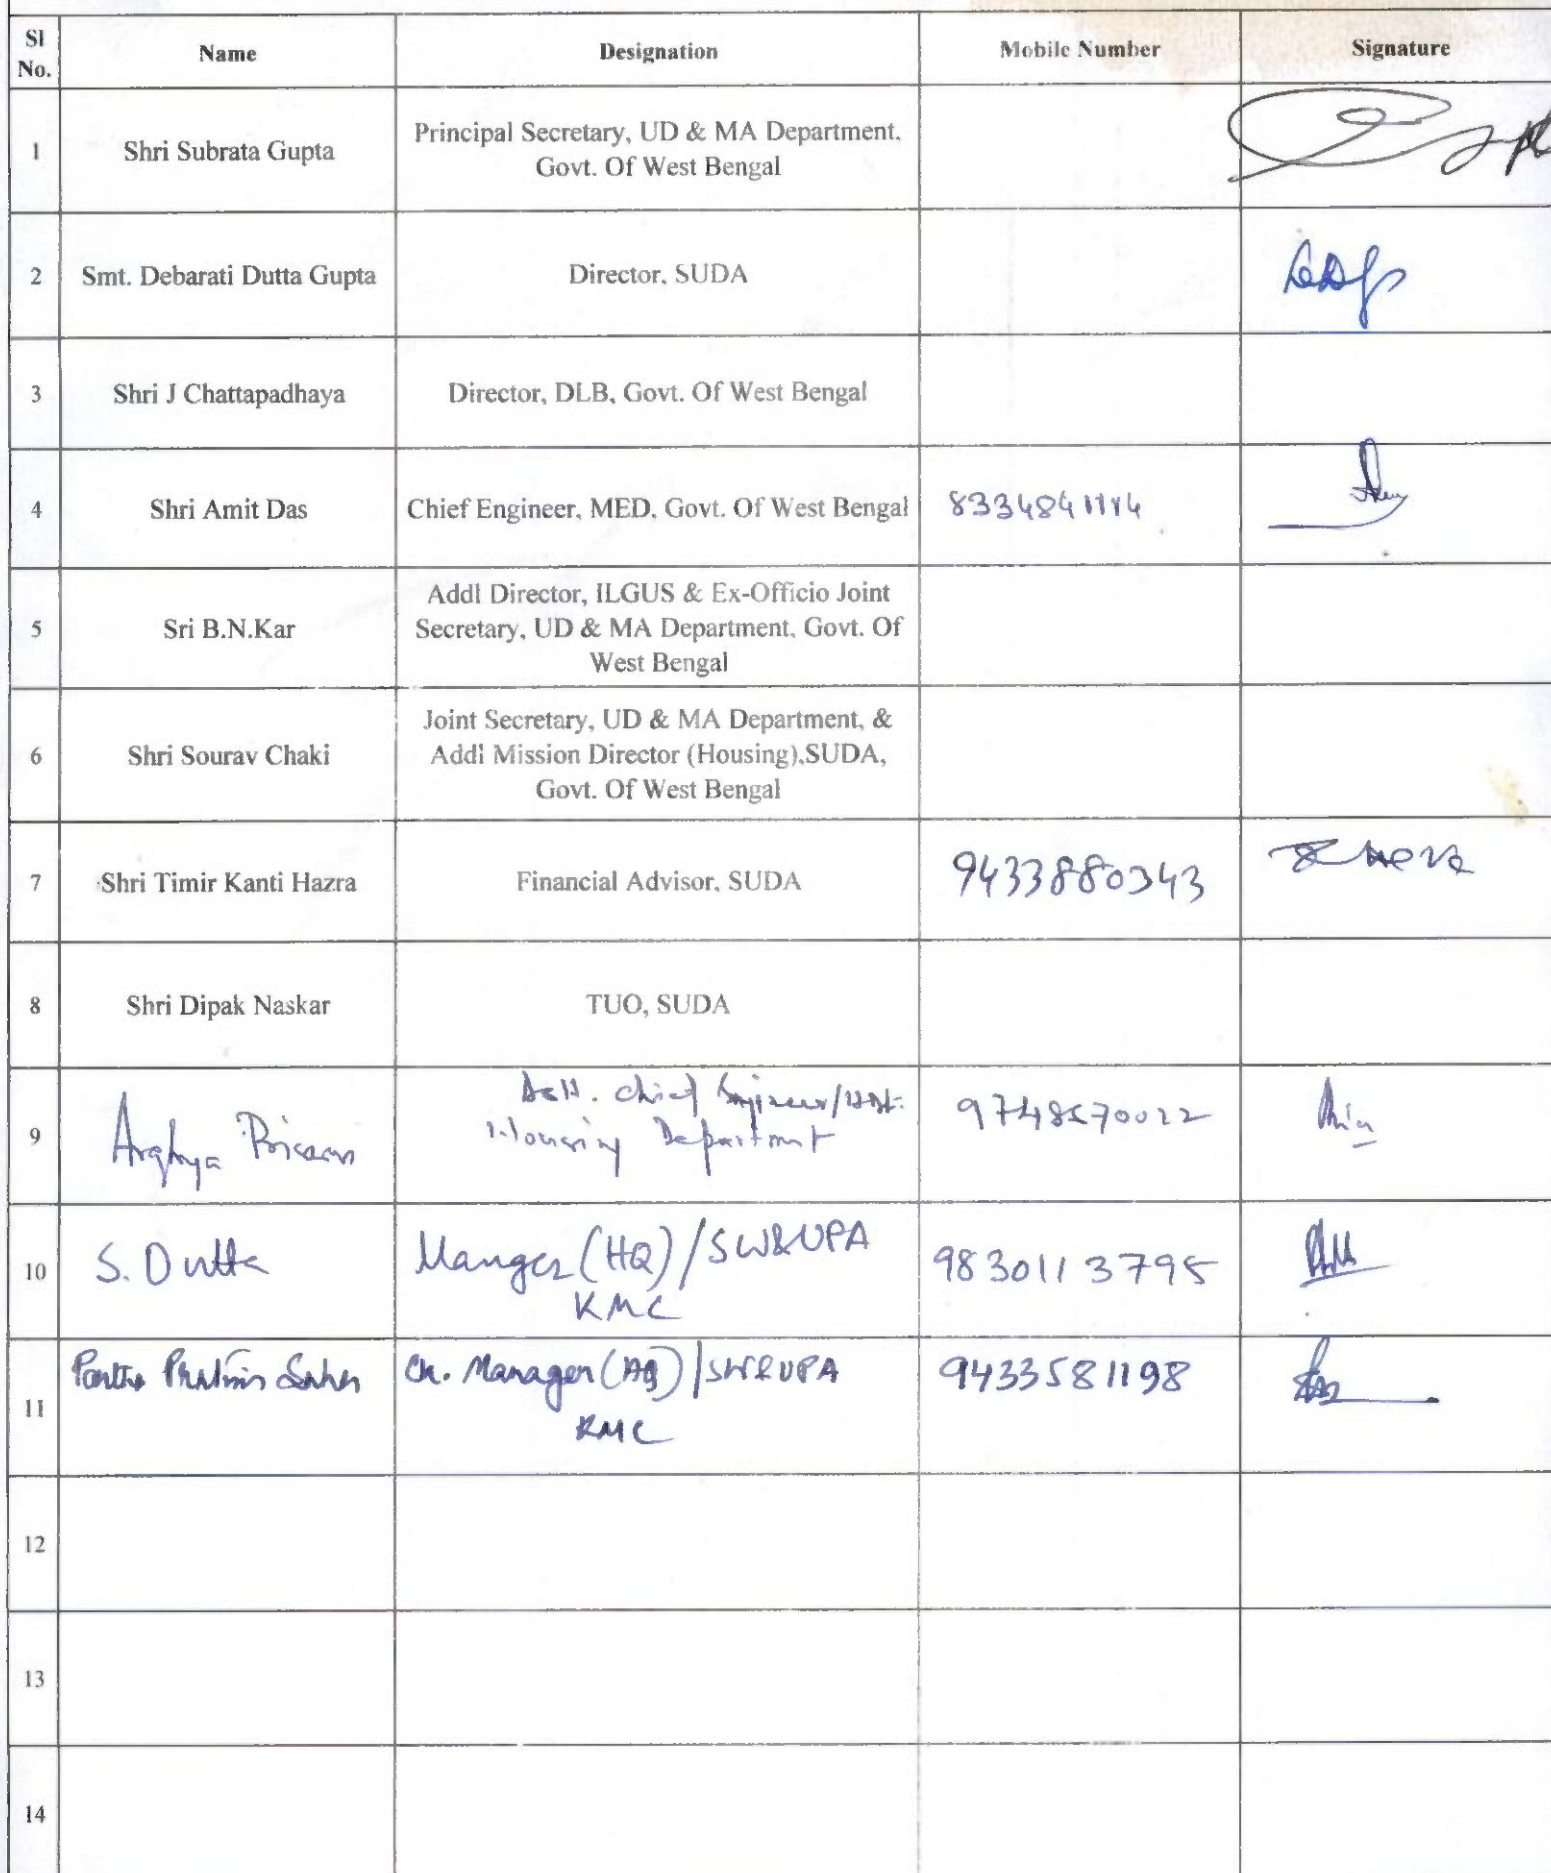 Sl No. Name Designation Mobile Number Signature
1 Shri Subrata Gupta Principal Secretary, UD & MA Department,
Govt. Of West Bengal
2 Smt. Debarati Dutta Gupta Director, SUDA
3 Shri J Chattapadhaya Director, DLB, Govt. Of West Bengal
4 Shri Amit Das Chief Engineer, MED, Govt. Of West Bengal
5 Sri B.N.Kar Addl Director, ILGUS & Ex-Officio Joint
Secretary, UD & MA Department, Govt. Of
West Bengal
6 Shri Sourav Chaki Joint Secretary, UD & MA Department, &
Addl Mission Director (Housing),SUDA,
Govt. Of West Bengal
7 Shri Timir Kanti Hazra Financial Advisor, SUDA 9433880343
8 Shri Dipak Naskar TUO, SUDA
9 Arghya Chief Engineer
Housing Department
10 S. Dutta Manger (HQ)/SW&UPA 9830113795
KMC
11 Ch. Manager /SW&UPA 9433581198
KMC
12
13
14